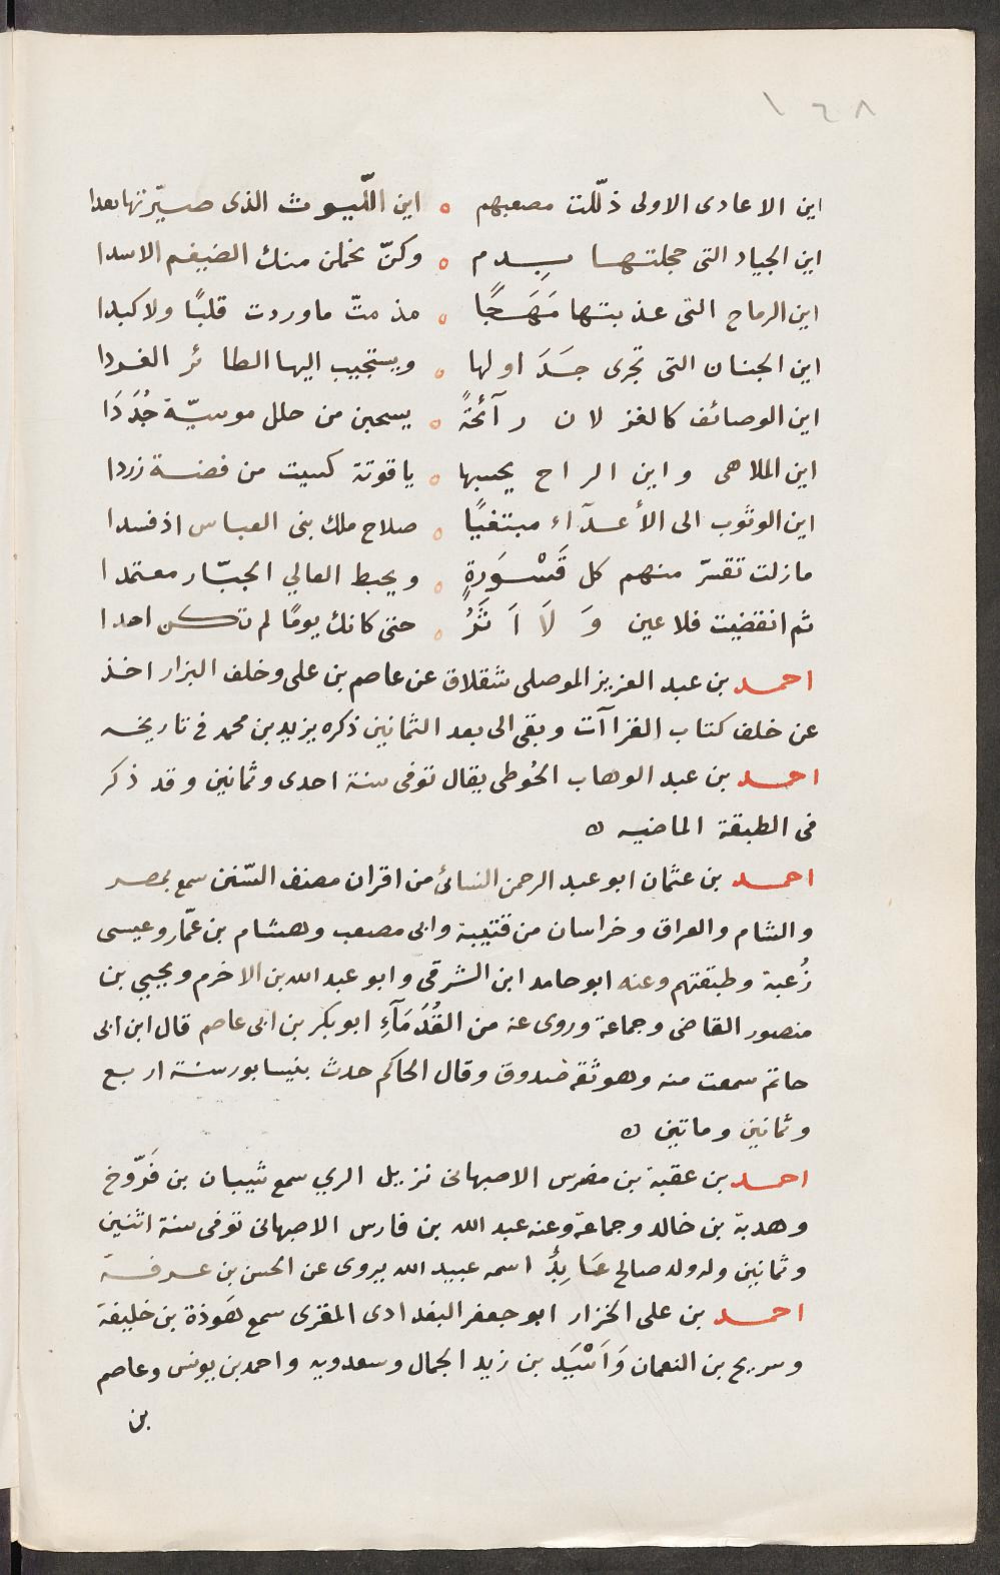 ١٦٨
اين الاعادى الاولى ذلّلت مصعبهم ه اين اللّيوث الذى صيّرتها بعدا
اين الجياد التى حجلتها بِدم ه وكنّ يحملن منك الضيغم الاسدا
اين الرماح التى غذيتها مَهَجًا ه مذ متّ ماوردت قلبًا ولا كبدا
اين الجنان التى تجرى جَدَ اولها ه ويستجيب اليها الطائر الغردا
اين الوصائف كالغزلان رآئحةً ه يسحبن من حلل موسيّة جُدَدَا
اين الملاهى واين الراح يحسبها ه ياقوتة كسيت من فضة زردا
اين الوثوب الى الأعدآء مبتغيًا ه صلاح ملك بنى العباس اذ فسدا
مازلت تقسرّ منهم كل قَسْوَرةٍ ه ويحبط العالي الجبّار معتمدا
ثم انقضيت فلا عين وَلَا اَثَرُ ه حتى كانك يومًا لم تكن احدا
احمد بن عبد العزيز الموصلى شقلاق عن عاصم بن على وخلف البزار اخذ
عن خلف كتاب القراآت وبقى الى بعد الثمانين ذكره يزيد بن محمد فى تاريخه
احمد بن عبد الوهاب الحُوطى يقال توفى سنة احدى وثمانين وقد ذكر
فى الطبقة الماضيه ه
احمد بن عثمان ابو عبد الرحمن النسائى من اقران مصنف السّنن سمع بمصر
والشام والعراق وخراسان من قتيبة وابى مصعب وهشام بن عمّار وعيسى
زُعبة وطبقتهم وعنه ابو حامد ابن الشرقى وابو عبد الله بن الاخرم ويحيي بن
منصور القاضى وجماعة وروى عنه من القُدَمَآءِ ابو بكر بن ابى عاصم قال ابن ابى
حاتم سمعت منه وهو ثقة صدوق وقال الحاكم حدث بنيسابور سنة اربع
وثمانين وماتين ه
احمد بن عقبة بن مضرس الاصبهانى نزيل الري سمع شيبان بن فَرّوخ
وهدبة بن خالد وجماعة وعنه عبد الله بن فارس الاصبهانى توفى سنة اثنين
وثمانين وله ولد صالح عَابِدٌ اسمه عبيد الله يروى عن الحسن بن عرفة
احمد بن على الخزار ابو جعفر البغدادى المقرى سمع هَوذة بن خليفة
وسريج بن النعمان وَاَسْيَد بن زيد الجمال وسعدويه واحمد بن يونس وعاصم
بن